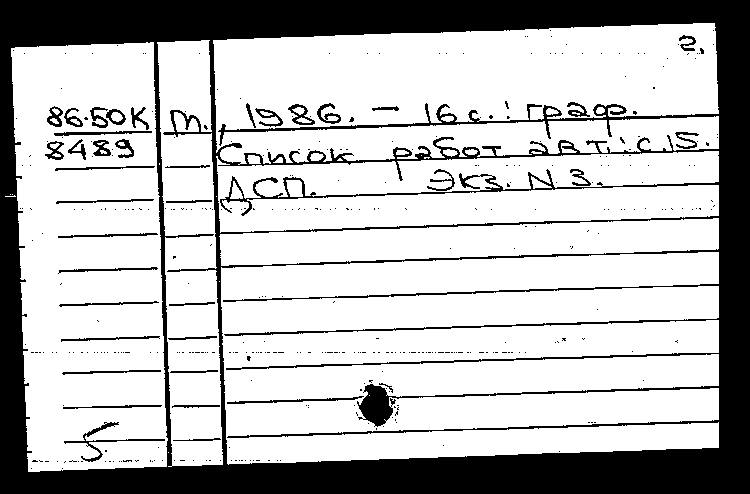 2.
86.50К т., 1986. – 16 с.: граф.
8489 Список работ авт.: с.15.
ДСП. Экз. N 3.
5